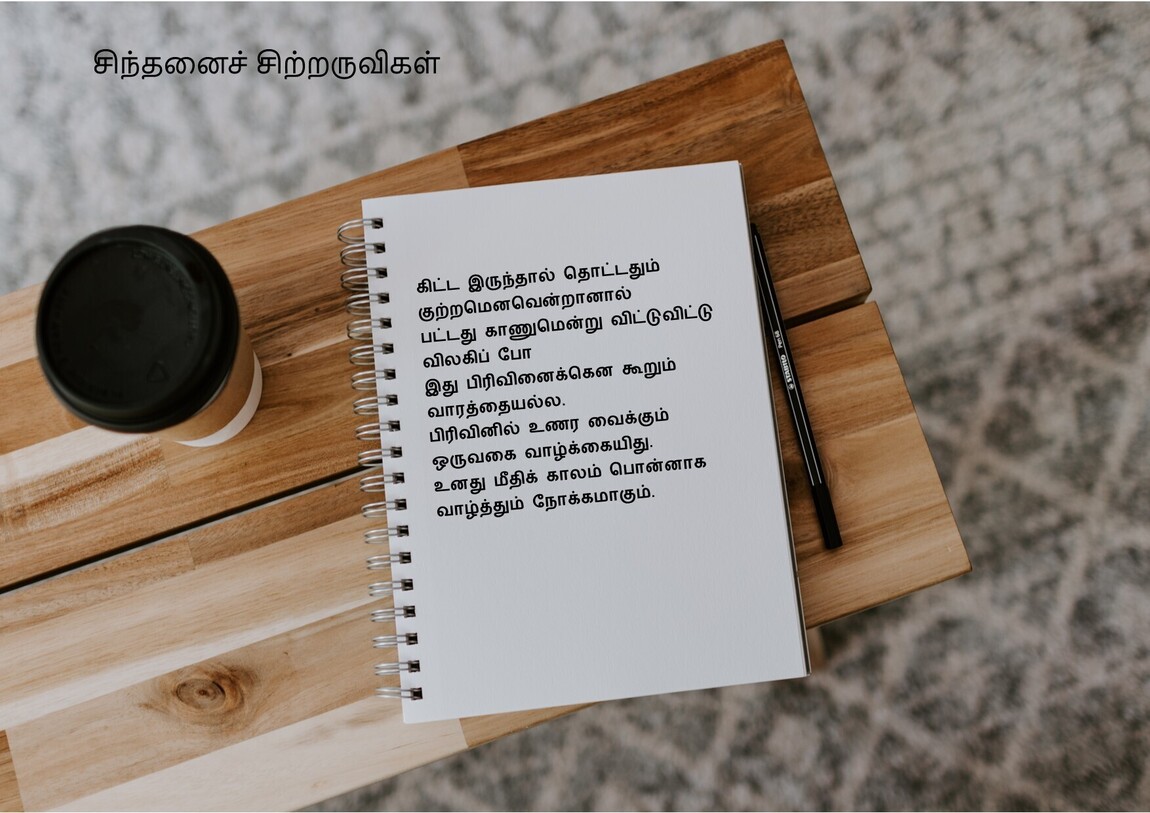 சிந்தனைச் சிற்றருவிகள்
கிட்ட இருந்தால் தொட்டதும்
குற்றமெனவென்றானால்
பட்டது காணுமென்று விட்டுவிட்டு
விலகிப் போ
இது பிரிவினைக்கென கூறும்
வாரத்தையல்ல.
பிரிவினில் உணர வைக்கும்
ஒருவகை வாழ்க்கையிது.
உனது மீதிக் காலம் பொன்னாக
வாழ்த்தும் நோக்கமாகும்.
STABILO